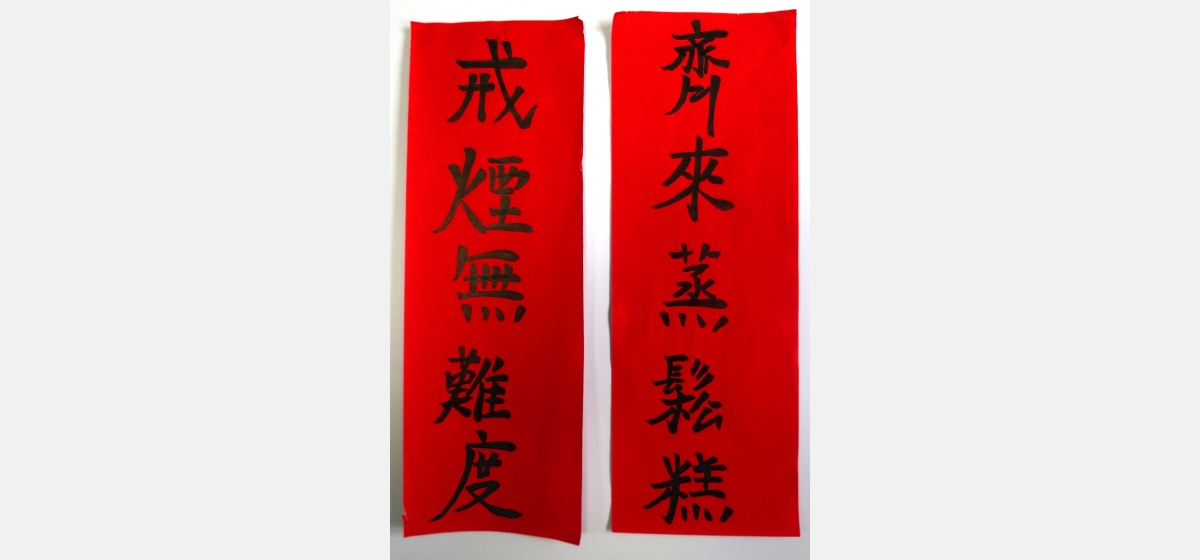 齊來蒸鬆糕
戒煙無難度